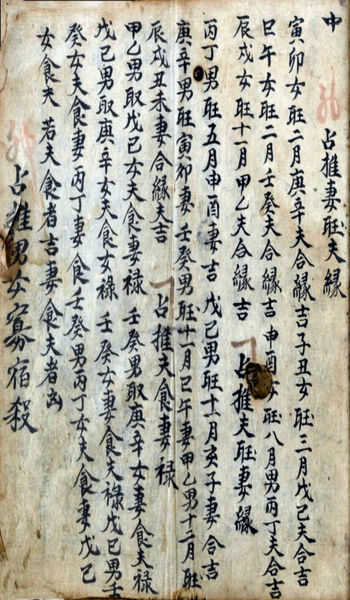 中 占推妻旺夫緣
寅卯女旺二月庚辛夫合緣吉子丑女旺三月戊己夫合吉
巳午女旺二月壬癸夫合緣吉申酉女旺八月男丙丁夫合吉
辰戌女旺十一月甲乙夫合緣吉 占推夫旺妻緣
丙丁男旺五月申酉妻吉戊己男旺十一月亥子妻合吉
庚辛男旺寅卯妻壬癸男旺十一月巳午妻甲乙男十二月旺
辰戌丑未妻合緣夫吉 占推夫食妻禄
甲乙男取戊己女夫食妻禄 壬癸男取庚辛女妻食夫禄
戊己男取庚辛女夫食女禄 壬癸女妻食夫禄戊己男壬
癸女夫食妻丙丁妻食壬癸男丙丁女夫食妻戊己
女食夫 若夫食者吉妻食夫者凶
占推男女寡宿殺